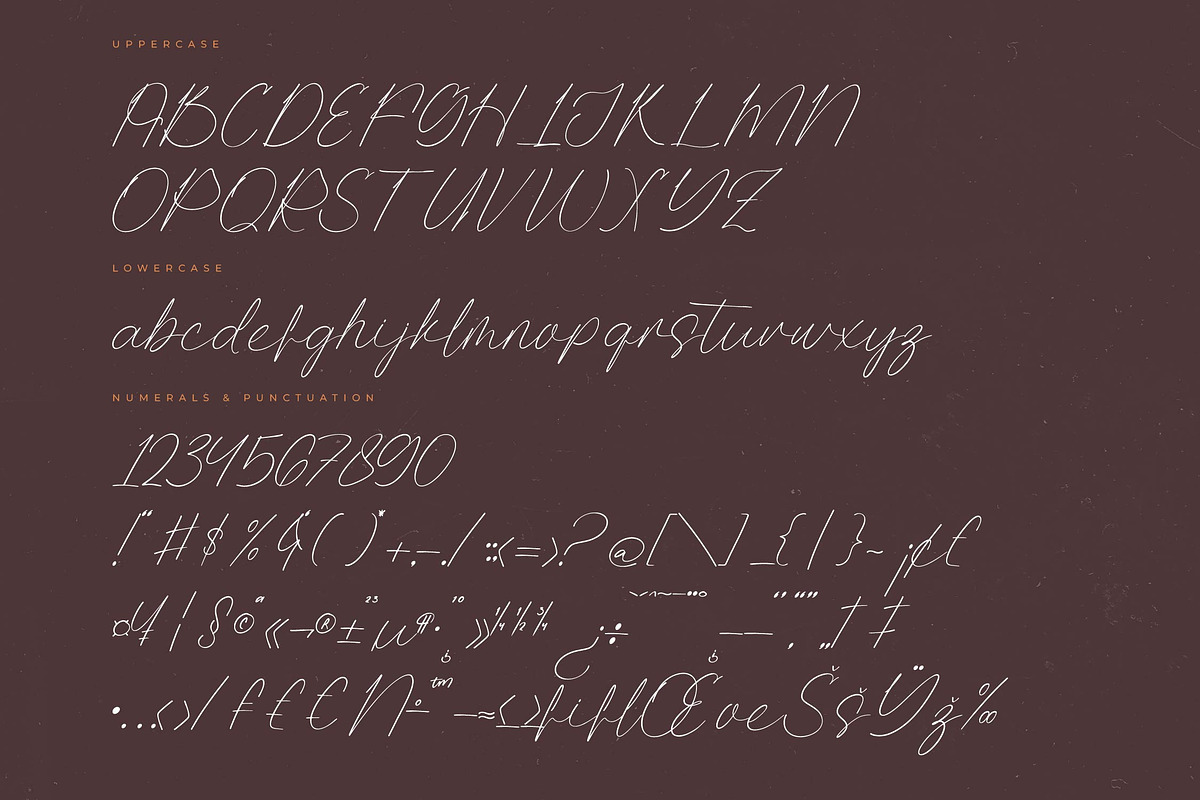 UPPERCASE
ABCDEFGHIJKLMN
OPQRSTUVWXYZ
LOWERCASE
abcdefghijklmnopqrstuvwxyz
NUMERALS & PUNCTUATION
1234567890
!"#$%&'()*+,-./:;<=>?@[\]_{|}~¡¢£
¤¥¦§©ª«¬®±²³µ¶·¹º»¼½¾¿÷ˇ˘ˆ˜¯¨˚–—‘’‚“”„†‡
•…‹›/ƒ£€№™−≈≤≥fiflŒœŠšŸž‰